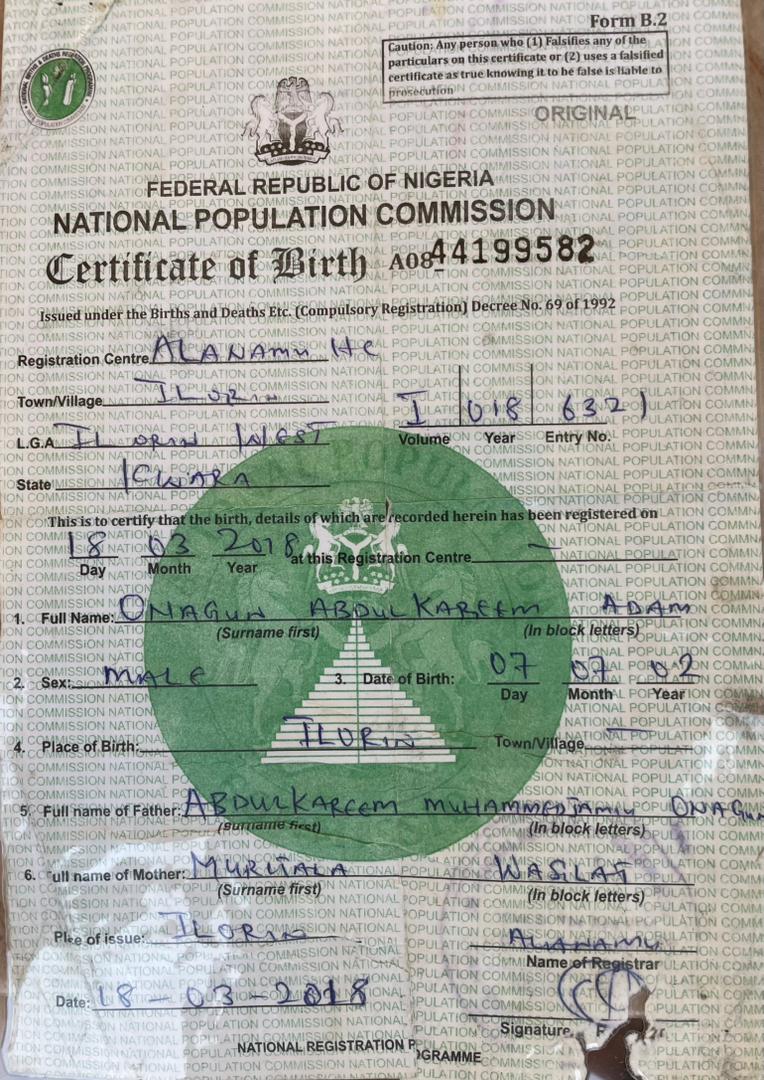 Form B.2
Caution: Any person who (1) Falsifies any of the
particulars on this certificate or (2) uses a falsified
certificate as true knowing it to be false is liable to
prosecution
ORIGINAL
FEDERAL REPUBLIC OF NIGERIA
NATIONAL POPULATION COMMISSION
Certificate of Birth A0844199582
Issued under the Births and Deaths Etc. (Compulsory Registration) Decree No. 69 of 1992
Registration Centre ALANAMU HC
Town/Village ILORIN
I 018 6321
L.G.A ILORIN WEST
Volume Year Entry No.
State KWARA
This is to certify that the birth, details of which are recorded herein has been registered on
18 03 2018 at this Registration Centre —
Day Month Year
1. Full Name: ONAGUN ABDULKAREEM ADAM
(Surname first) (In block letters)
2. Sex: MALE 3. Date of Birth: 07 07 02
Day Month Year
4. Place of Birth: ILORIN Town/Village —
5. Full name of Father: ABDULKAREEM MUHAMMEDJAMIU ONAGUN
(Surname first) (In block letters)
6. Full name of Mother: MURITALA WASILAT
(Surname first) (In block letters)
Place of issue: ILORIN
ALANAMU
Name of Registrar
Date: 18-03-2018
Signature
NATIONAL REGISTRATION PROGRAMME